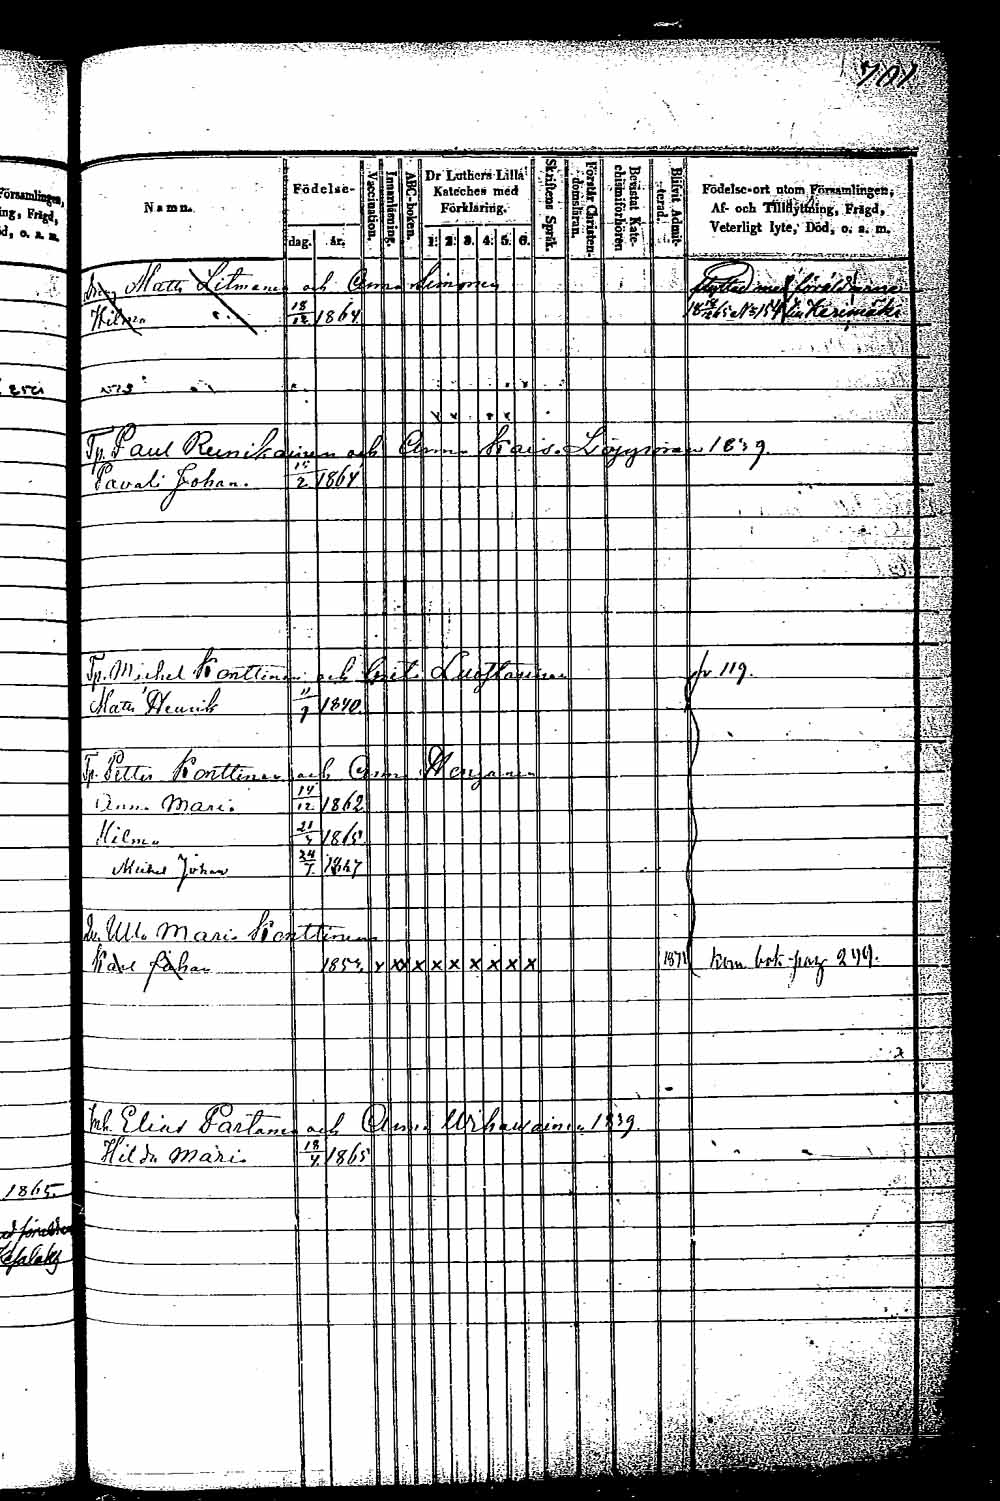 701
Församlingen,
ing, Frägd,
öd, o. s. m.
Namn.
Födelse-
dag. år.
Vaccination.
Innanläsning.
ABC-boken.
Dr Luthers Lilla
Kateches med
Förklaring.
1. 2. 3. 4. 5. 6.
Skriftens Språk.
Förstår Christen-
domsläran.
Bevistat Kate-
chismiförhören
Blifvit Admit-
terad.
Födelse-ort utom Församlingen,
Af- och Tillflyttning, Frägd,
Veterligt lyte, Död, o. s. m.
Matts Litmanen och Anna Simonen
Hilma 18/12 1864
flyttad med föräldrarne
till Kerimäki
Tp. Paul Reinikainen och Anna Kaisa Löppönen 1839.
Pavali Johan. 15/2 1864
Tp. Michel Konttinen och Greta Luostarinen
fr 119.
Matts Henrik 11/9 1840.
Tp. Petter Konttinen och Anna
Anna Maria 14/12 1862
Hilma 1865
Michel Johan 24/7. 1867
Ulla Maria Konttinen
Karl Johan 1853. x xx x x x x x x x 1871 kom. bok. pag 299.
Inh. Elias Partanen och Anna 1839
Hilda Maria 18/4. 1865
1865.